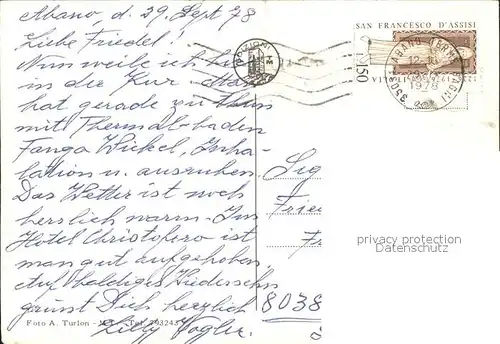 Abano, d. 29. Sept 78
Liebe Friedel!
Nun weile ich hier
in der Kur. Man
hat gerade zu tun
mit Thermal-baden
Fango Wickel, Inha-
lation u. ausruhen.
Das Wetter ist noch
herrlich warm. Im
Hotel Christoforo ist
man gut aufgehoben.
Auf baldiges Wiedersehn
grüsst Dich herzlich
Lilly Vogler
Foto A. Turlon - Tel. 793243
SAN FRANCESCO D'ASSISI
L. 150
35031 ABANO TERME
1978
Sig
Frie
Fr
8038
privacy protection
Datenschutz